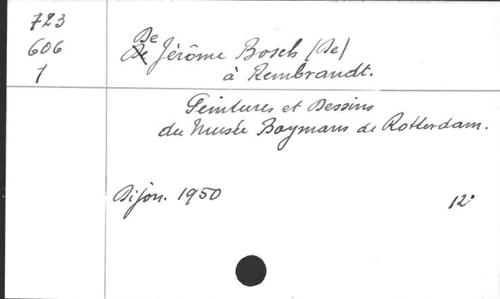 723
606
1
De
De Jérôme Bosch (De)
à Rembrandt.
Peintures et Dessins
du Musée Boymans de Rotterdam.
Dijon. 1950
12°